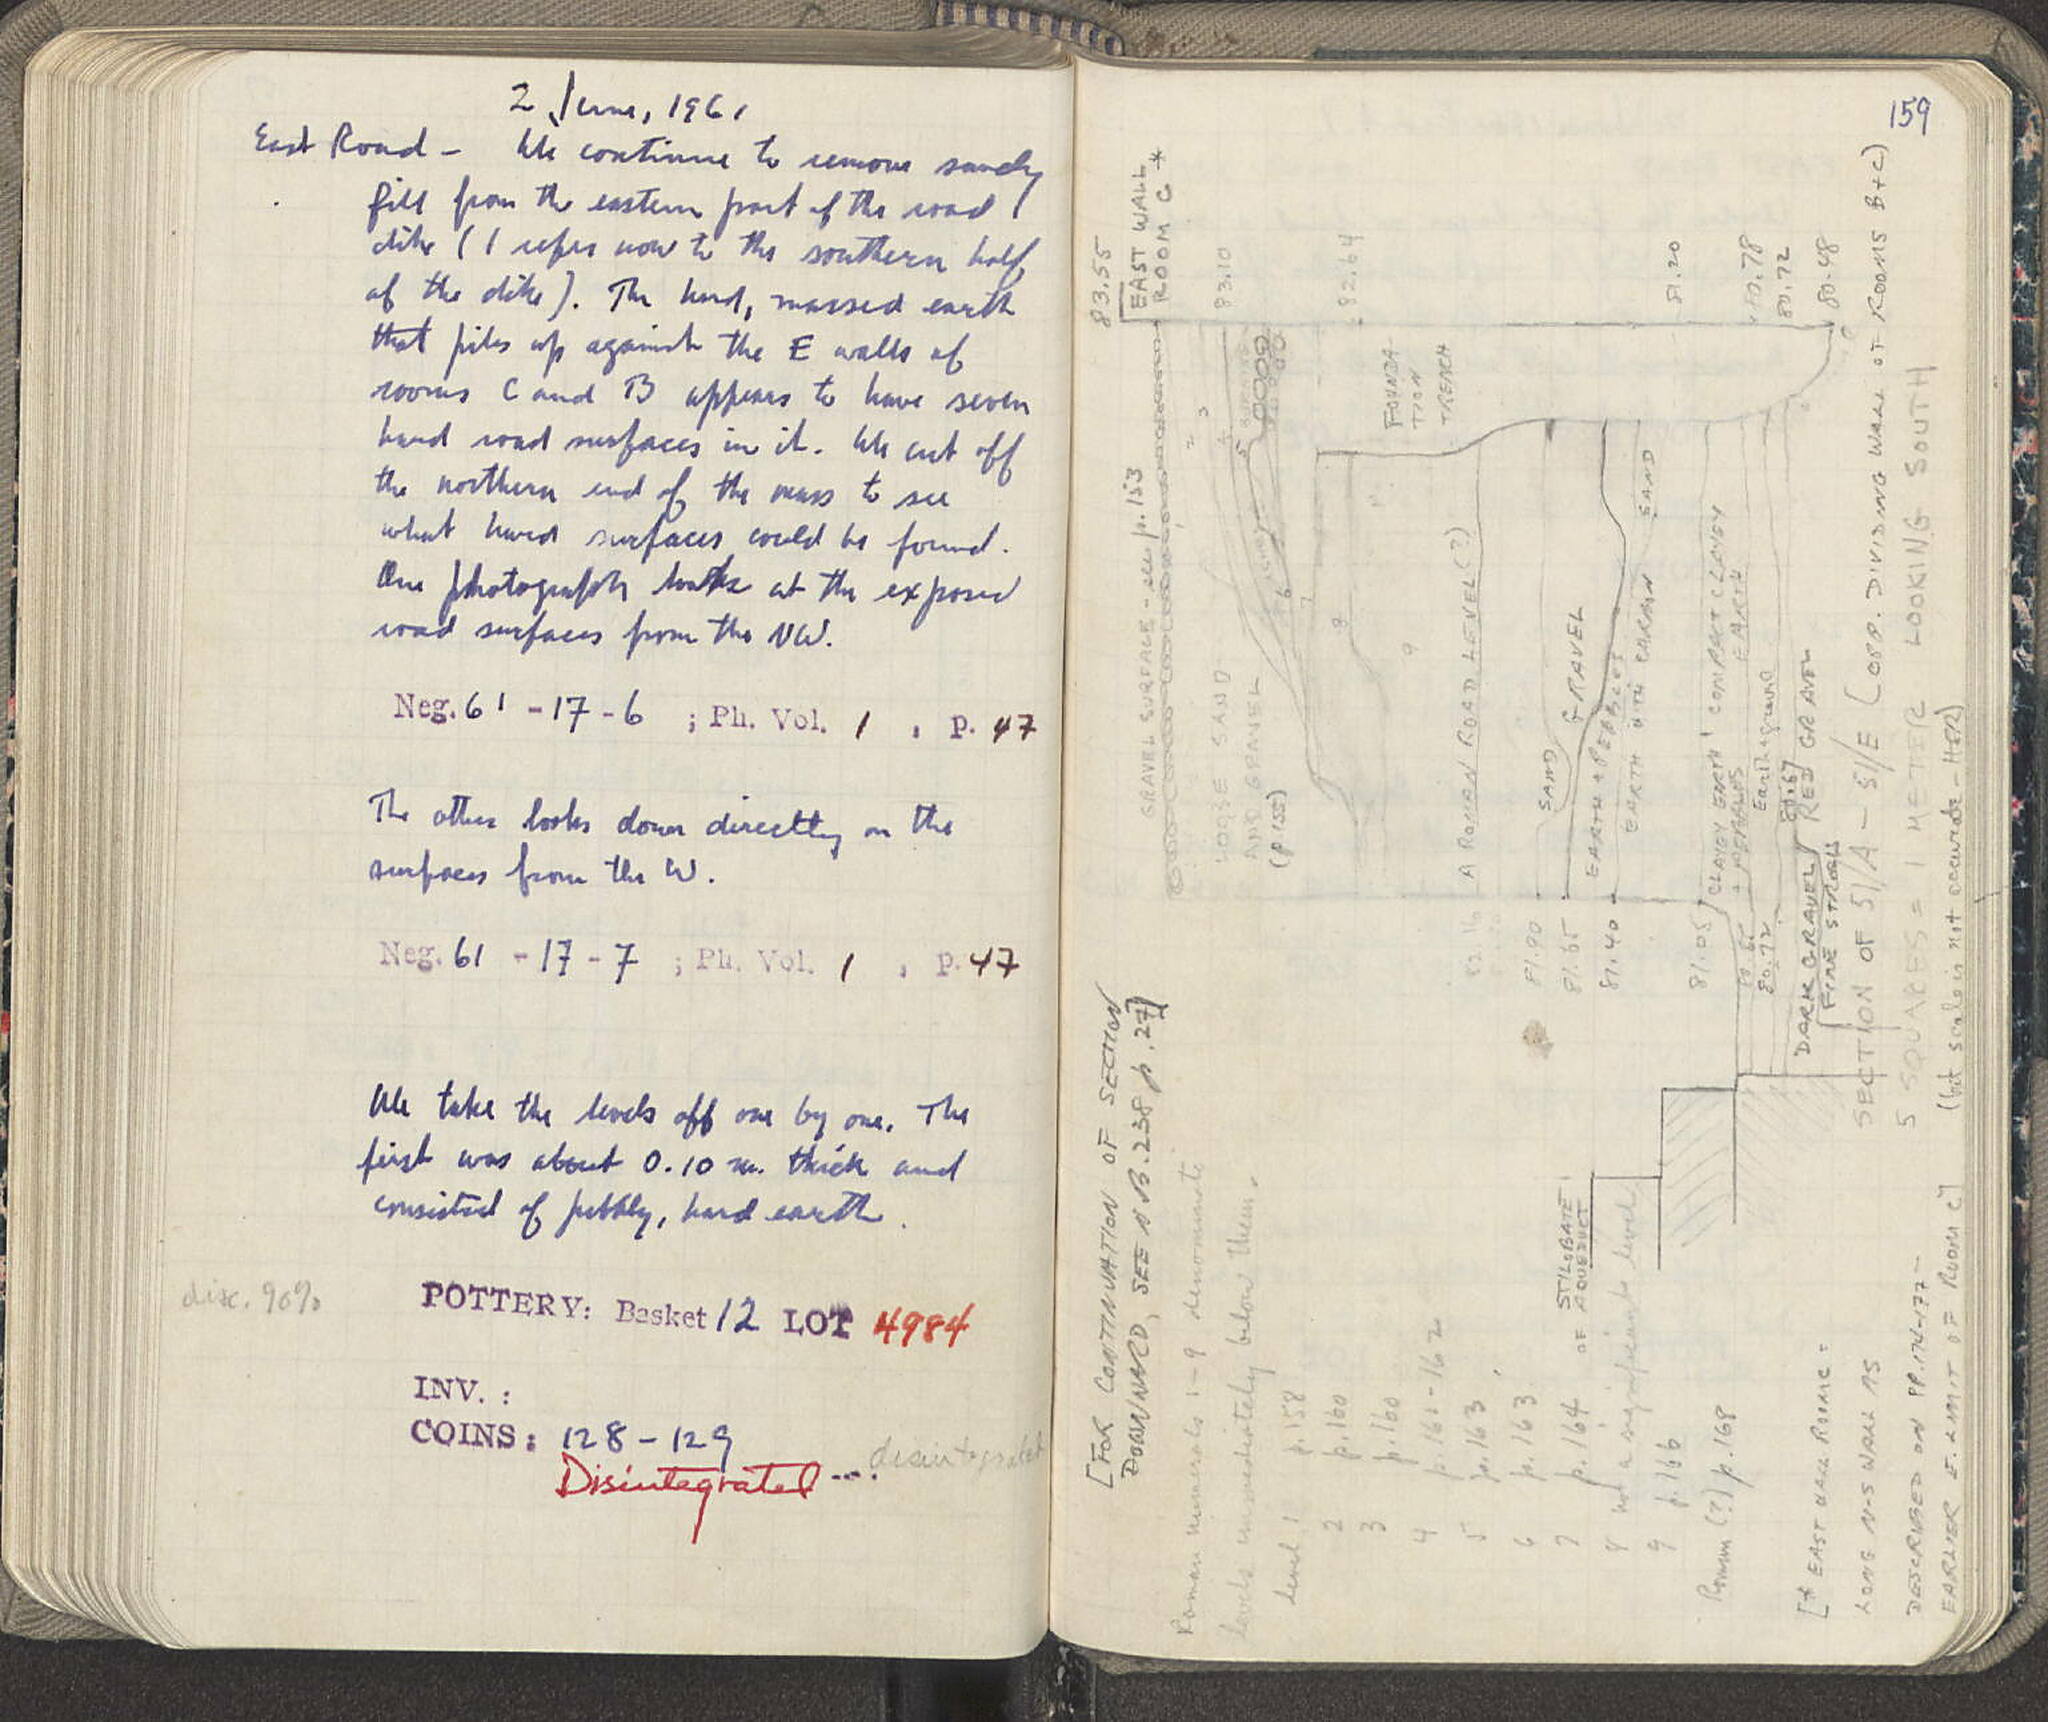 2 June, 1961
East Road - We continue to remove sandy
fill from the eastern part of the road
dike (I refer now to the southern half
of the dike). The hard, massed earth
that piles up against the E walls of
rooms C and B appears to have seven
hard road surfaces in it. We cut off
the northern end of the mass to see
what hard surfaces could be found.
One photograph looks at the exposed
road surfaces from the NW.
Neg. 61 - 17 - 6 ; Ph. Vol. 1 , p. 47
The other looks down directly on the
surfaces from the W.
Neg. 61 - 17 - 7 ; Ph. Vol. 1 , p. 47
We take the levels off one by one. The
first was about 0.10 m. thick and
consisted of pebbly, hard earth.
disc. 90%
POTTERY: Basket 12 LOT 4984
INV. :
COINS: 128 - 129
Disintegrated .... disintegrated
159
83.55
EAST WALL
ROOM C *
83.10
82.64
81.20
80.78
80.72
80.48
FOUNDA-
TION
TRENCH
GRAVEL SURFACE - see p. 153
LOOSE SAND
AND GRAVEL
(p 155)
2
3
5
6
7
8
9
A ROMAN ROAD LEVEL (?)
SAND
GRAVEL
EARTH + PEBBLES
EARTH WITH
SAND
CLAYEY EARTH
COMPACT CLAYEY
EARTH
Earth + gravel
80.67
RED GRAVEL
DARK GRAVEL
FINE STROSIS
82.16
81.90
81.65
81.40
81.05
80.72
SECTION OF 51/A - 51/E (OPP. DIVIDING WALL OF ROOMS B+C)
5 SQUARES = 1 METER LOOKING SOUTH
(but scale is not accurate - HSR)
STILOBATE
OF AQUEDUCT
[FOR CONTINUATION OF SECTION
DOWNWARD, SEE NB. 238 p. 27]
Roman numerals 1-9 denominate
levels immediately below them.
Level 1 p. 158
2 p. 160
3 p. 160
4 p. 161-162
5 p. 163
6 p. 163
7 p. 164
8 not a significant level
9 p. 166
Roman (?) p. 168
[* EAST WALL ROOM C =
LONG N-S WALL AS
DESCRIBED ON PP. 174-177 -
EARLIER E. LIMIT OF ROOM C]